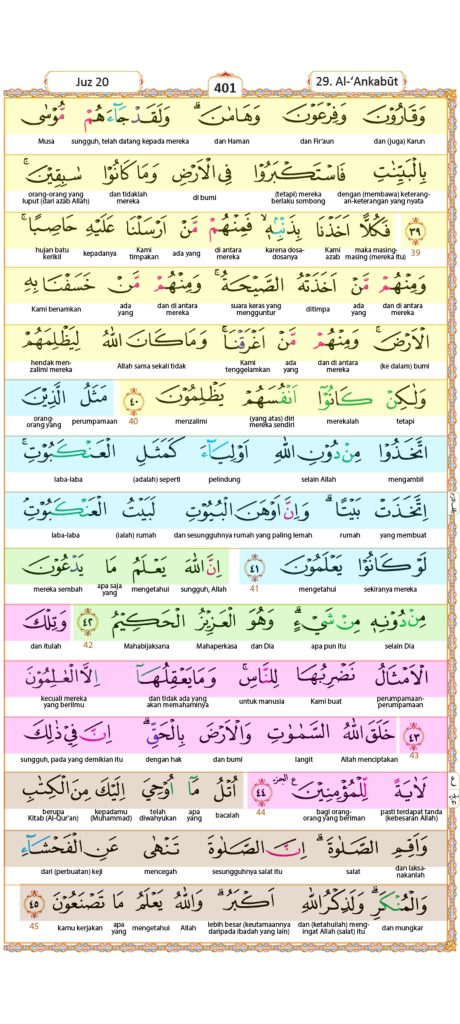 Juz 20
401
29. Al-‘Ankabūt
وَقَارُوْنَ وَفِرْعَوْنَ وَهَامٰنَۗ وَلَقَدْ جَاۤءَهُمْ مُّوْسٰى
dan (juga) Karun dan Fir'aun dan Haman sungguh, telah datang kepada mereka Musa
بِالْبَيِّنٰتِ فَاسْتَكْبَرُوْا فِى الْاَرْضِ وَمَا كَانُوْا سٰبِقِيْنَۚ
dengan (membawa) keterangan-keterangan yang nyata (tetapi) mereka berlaku sombong di bumi dan tidaklah mereka orang-orang yang luput (dari azab Allah)
٣٩ فَكُلًّا اَخَذْنَا بِذَنْۢبِهٖۙ فَمِنْهُمْ مَّنْ اَرْسَلْنَا عَلَيْهِ حَاصِبًاۚ
39 maka masing-masing (mereka itu) Kami azab karena dosa-dosanya di antara mereka ada yang Kami timpakan kepadanya hujan batu kerikil
وَمِنْهُمْ مَّنْ اَخَذَتْهُ الصَّيْحَةُۚ وَمِنْهُمْ مَّنْ خَسَفْنَا بِهِ
dan di antara mereka ada yang ditimpa suara keras yang mengguntur dan di antara mereka ada yang Kami benamkan
الْاَرْضَۚ وَمِنْهُمْ مَّنْ اَغْرَقْنَاۚ وَمَا كَانَ اللّٰهُ لِيَظْلِمَهُمْ
(ke dalam) bumi dan di antara mereka ada yang Kami tenggelamkan Allah sama sekali tidak hendak menzalimi mereka
وَلٰكِنْ كَانُوْٓا اَنْفُسَهُمْ يَظْلِمُوْنَ ٤٠ مَثَلُ الَّذِيْنَ
tetapi merekalah (yang atas) diri mereka sendiri menzalimi 40 perumpamaan orang-orang yang
اتَّخَذُوْا مِنْ دُوْنِ اللّٰهِ اَوْلِيَاۤءَ كَمَثَلِ الْعَنْكَبُوْتِۚ
mengambil selain Allah pelindung (adalah) seperti laba-laba
اِتَّخَذَتْ بَيْتًاۗ وَاِنَّ اَوْهَنَ الْبُيُوْتِ لَبَيْتُ الْعَنْكَبُوْتِ
yang membuat rumah dan sesungguhnya rumah yang paling lemah (ialah) rumah laba-laba
لَوْ كَانُوْا يَعْلَمُوْنَ ٤١ اِنَّ اللّٰهَ يَعْلَمُ مَا يَدْعُوْنَ
sekiranya mereka mengetahui 41 sungguh, Allah mengetahui apa saja yang mereka sembah
مِنْ دُوْنِهٖ مِنْ شَيْءٍۗ وَهُوَ الْعَزِيْزُ الْحَكِيْمُ ٤٢ وَتِلْكَ
selain Dia apa pun itu dan Dia Mahaperkasa Mahabijaksana 42 dan itulah
الْاَمْثَالُ نَضْرِبُهَا لِلنَّاسِۚ وَمَا يَعْقِلُهَآ اِلَّا الْعٰلِمُوْنَ
perumpamaan-perumpamaan Kami buat untuk manusia dan tidak ada yang akan memahaminya kecuali mereka yang berilmu
٤٣ خَلَقَ اللّٰهُ السَّمٰوٰتِ وَالْاَرْضَ بِالْحَقِّۗ اِنَّ فِيْ ذٰلِكَ
43 Allah menciptakan langit dan bumi dengan hak sungguh, pada yang demikian itu
لَاٰيَةً لِّلْمُؤْمِنِيْنَ ࣖ الجزء ٤٤ اُتْلُ مَآ اُوْحِيَ اِلَيْكَ مِنَ الْكِتٰبِ
pasti terdapat tanda (kebesaran Allah) bagi orang-orang yang beriman 44 bacalah apa yang telah diwahyukan kepadamu (Muhammad) berupa Kitab (Al-Qur'an)
وَاَقِمِ الصَّلٰوةَۗ اِنَّ الصَّلٰوةَ تَنْهٰى عَنِ الْفَحْشَاۤءِ
dan laksanakanlah salat sesungguhnya salat itu mencegah dari (perbuatan) keji
وَالْمُنْكَرِۗ وَلَذِكْرُ اللّٰهِ اَكْبَرُۗ وَاللّٰهُ يَعْلَمُ مَا تَصْنَعُوْنَ ٤٥
dan mungkar dan (ketahuilah) mengingat Allah (salat) itu lebih besar (keutamaannya daripada ibadah yang lain) Allah mengetahui apa yang kamu kerjakan 45